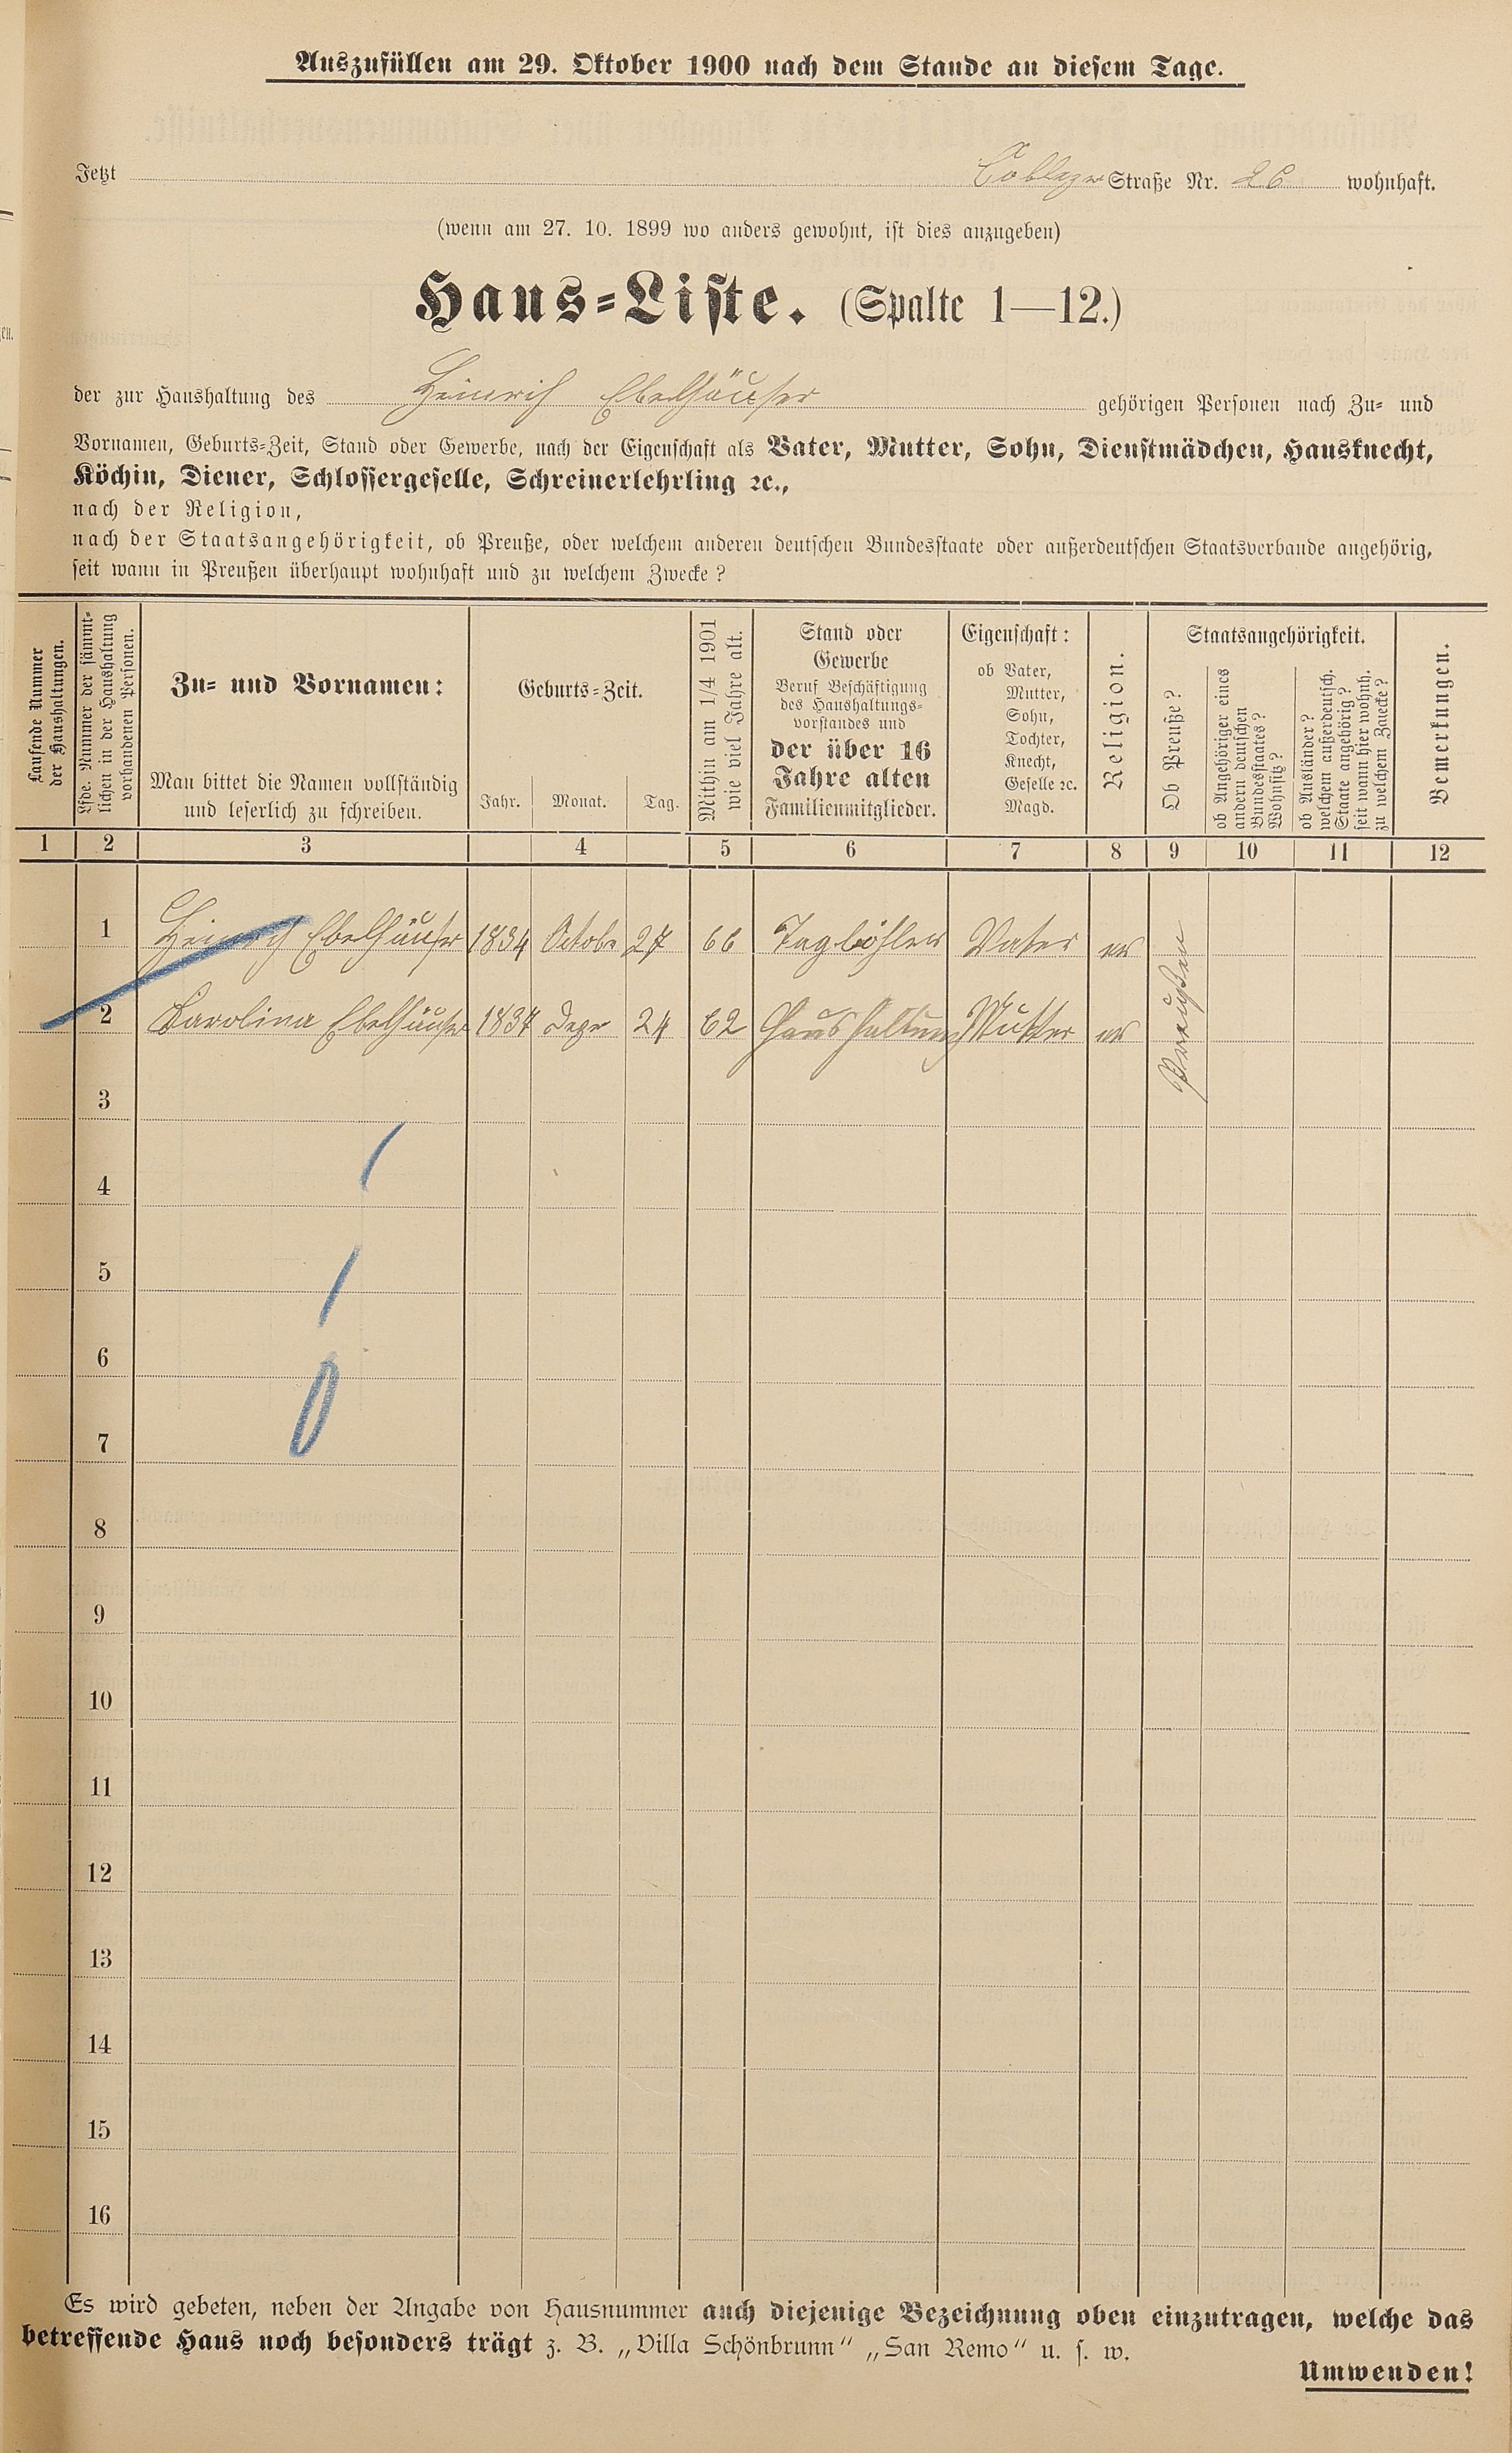 Auszufüllen am 29. Oktober 1900 nach dem Stande an diesem Tage.
Jetzt Coblezer Straße Nr. 26 wohnhaft.
(wenn am 27. 10. 1899 wo anders gewohnt, ist dies anzugeben)
Haus-Liste. (Spalte 1—12.)
der zur Haushaltung des Heinrich Ebelhäuser gehörigen Personen nach Zu- und
Vornamen, Geburts-Zeit, Stand oder Gewerbe, nach der Eigenschaft als Vater, Mutter, Sohn, Dienstmädchen, Hausknecht,
Köchin, Diener, Schlossergeselle, Schreinerlehrling ꝛc.,
nach der Religion,
nach der Staatsangehörigkeit, ob Preuße, oder welchem anderen deutschen Bundesstaate oder außerdeutschen Staatsverbande angehörig,
seit wann in Preußen überhaupt wohnhaft und zu welchem Zwecke?
Laufende Nummer
der Haushaltungen.
Lfde. Nummer der sämmt-
lichen in der Haushaltung
vorhandenen Personen.
Zu- und Vornamen:
Man bittet die Namen vollständig
und leserlich zu schreiben.
Geburts-Zeit.
Jahr. Monat. Tag.
Mithin am 1/4 1901
wie viel Jahre alt.
Stand oder
Gewerbe
Beruf Beschäftigung
des Haushaltungs-
vorstandes und
der über 16
Jahre alten
Familienmitglieder.
Eigenschaft:
ob Vater,
Mutter,
Sohn,
Tochter,
Knecht,
Geselle ꝛc.
Magd.
Religion.
Staatsangehörigkeit.
Ob Preuße?
ob Angehöriger eines
andern deutschen
Bundesstaates?
Wohnsitz?
ob Ausländer?
welchem außerdeutsch.
Staate angehörig?
seit wann hier wohnh.
zu welchem Zwecke?
Bemerkungen.
1 2 3 4 5 6 7 8 9 10 11 12
1 Heinrich Ebelhäuser 1834 Octobr 27 66 Taglöhner Vater ev
2 Karolina Ebelhäuser 1837 Dezr 24 62 Haushaltung Mutter ev
Preußen
3
4
5
6
7
8
9
10
11
12
13
14
15
16
Es wird gebeten, neben der Angabe von Hausnummer auch diejenige Bezeichnung oben einzutragen, welche das
betreffende Haus noch besonders trägt z. B. „Villa Schönbrunn" „San Remo" u. s. w.
Umwenden!